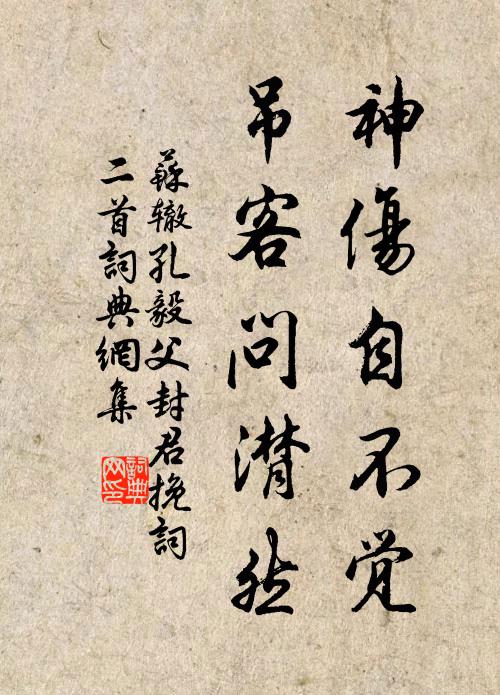 神傷自不觉
吊客問潸然
蘇辙孔毅父封君挽詞
二首詞典網集
詞典
网印